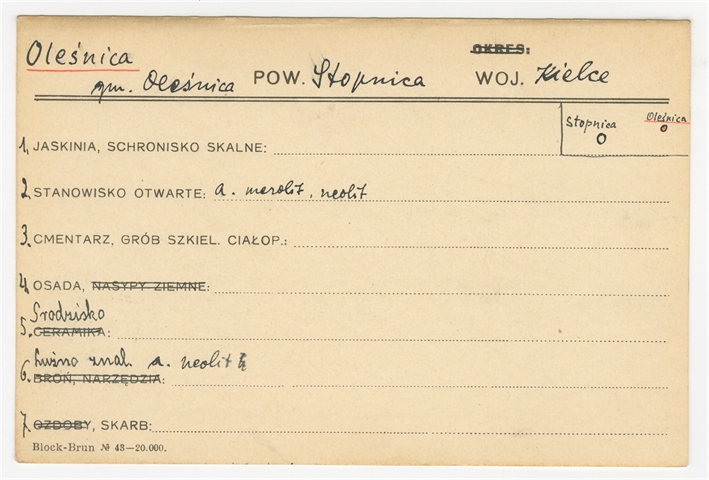 Oleśnica
OKRES:
gm. Oleśnica POW. Stopnica WOJ. Kielce
Stopnica Oleśnica
1. JASKINIA, SCHRONISKO SKALNE:
2. STANOWISKO OTWARTE: a. mezolit, neolit
3. CMENTARZ, GRÓB SZKIEL. CIAŁOP.:
4. OSADA, NASYPY ZIEMNE:
Grodzisko
5. CERAMIKA:
Luźne znal. a. neolit
6. BROŃ, NARZĘDZIA:
7. OZDOBY, SKARB:
Block-Brun № 43—20.000.